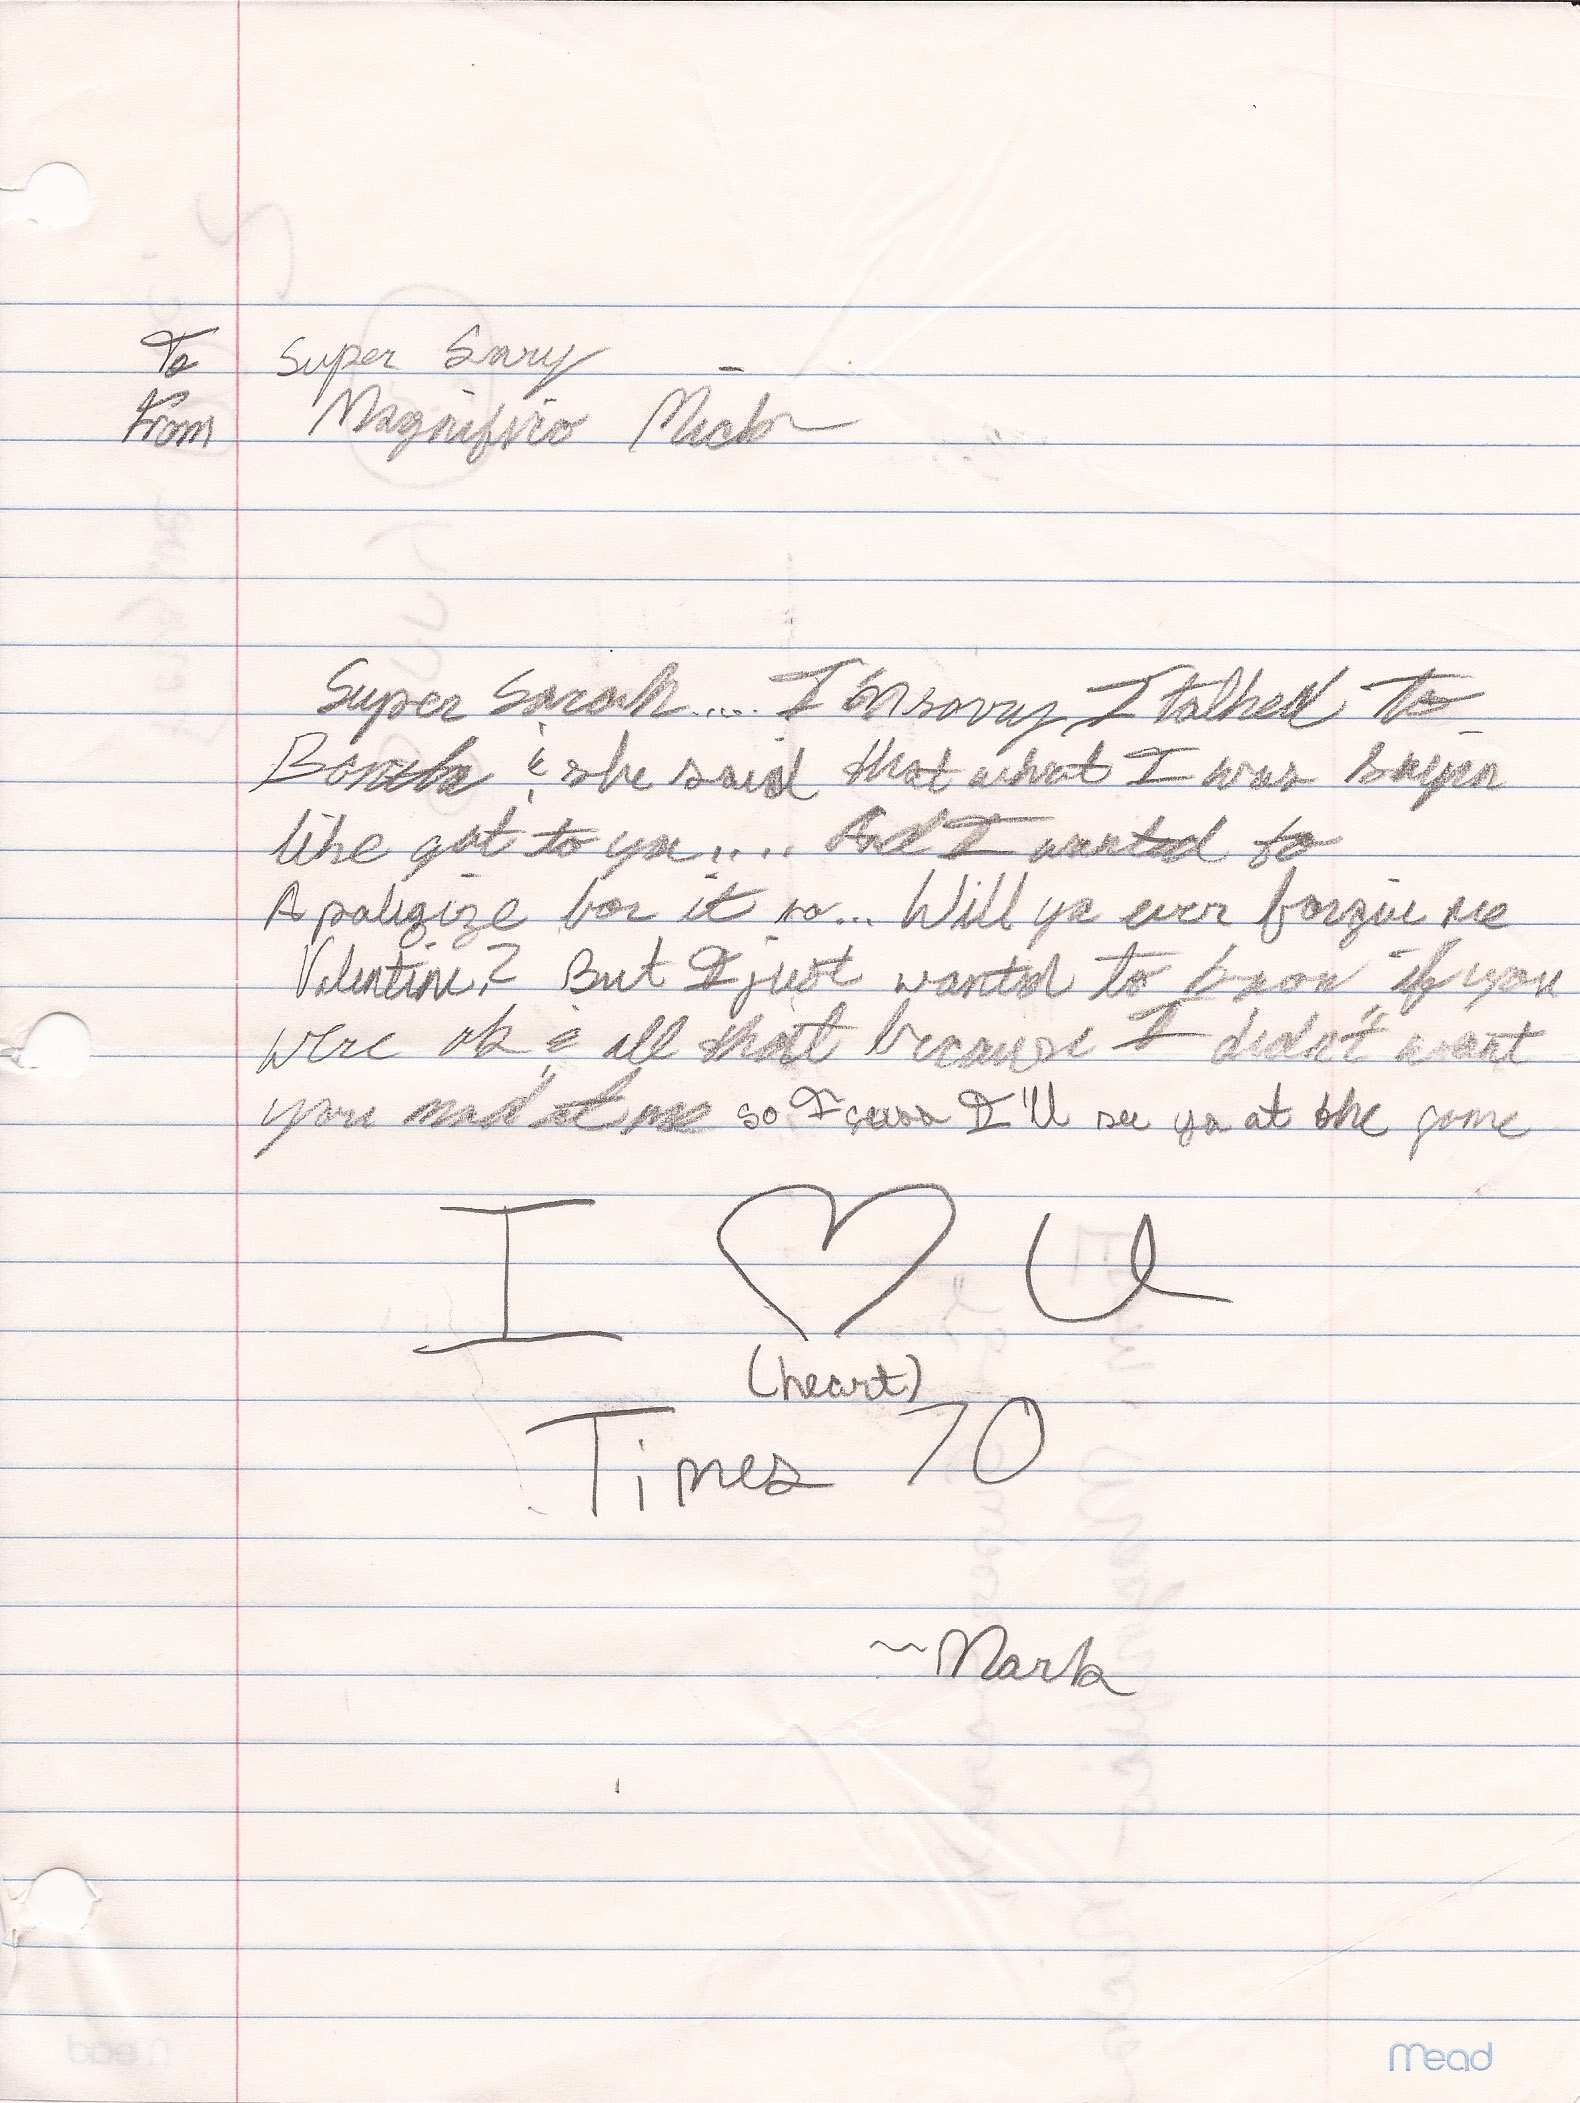 To Super Sary
From Magnifico Mick
Super Sarah.... I'm sorry, I talked to
& she said that what I was sayin
like got to ya.... And I wanted to
Apoligize for it so... Will ya ever forgive me
Valentine? But I just wanted to know if you
were ok & all that because I didn't want
you mad at me so I guess I'll see ya at the game
I ♡ U
(heart)
Times 70
~Mark
Mead